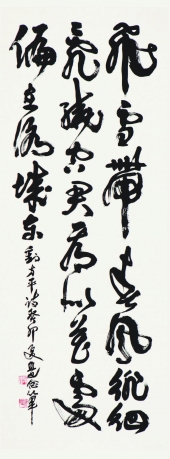 飛雪帶春風徘徊
亂繞空君看似花處
偏在洛城東
劉方平詩癸卯夏